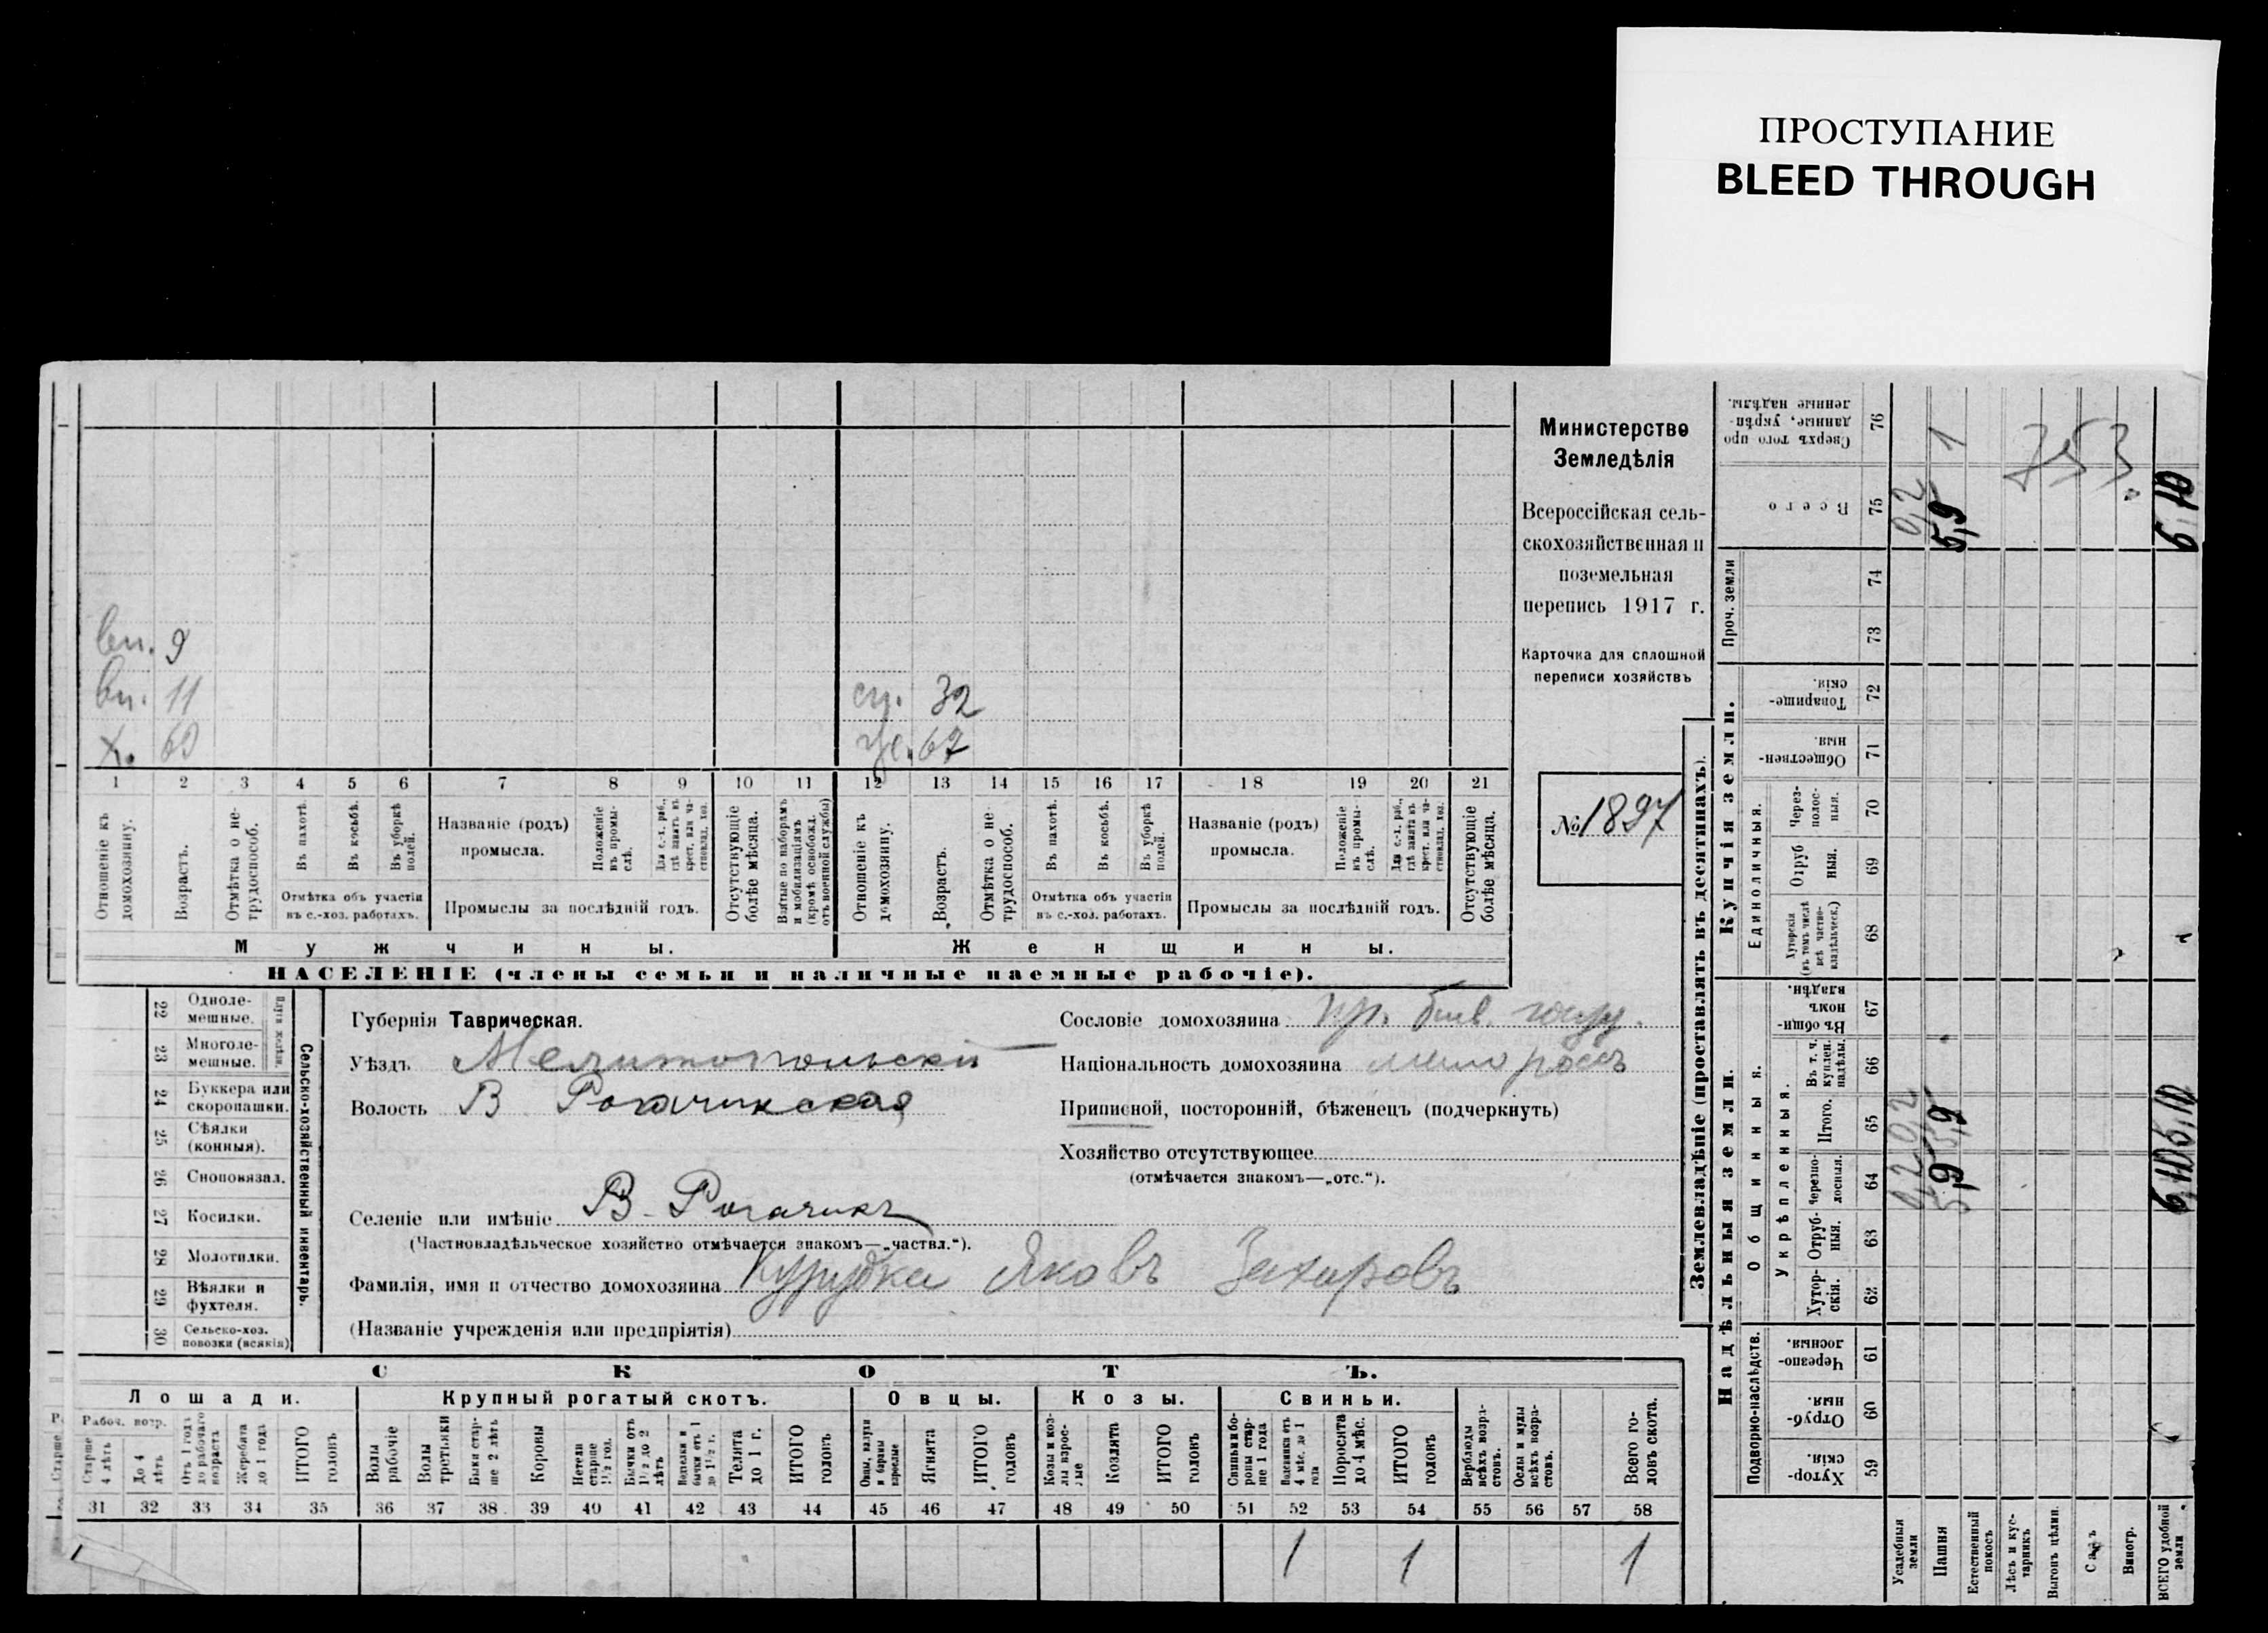 ПРОСТУПАНИЕ
BLEED THROUGH
Министерство
Земледѣлія
Всероссійская сель-
скохозяйственная и
поземельная
перепись 1917 г.
Карточка для сплошной
переписи хозяйствъ
№ 1897
вн. 9
вн. 11
х. 60
сн. 32
ж. 67
1 2 3 4 5 6 7 8 9 10 11 12 13 14 15 16 17 18 19 20 21
Отношеніе къ домохозяину.
Возрастъ.
Отмѣтка о не-трудоспособ.
Въ пахотѣ.
Въ косьбѣ.
Въ уборкѣ полей.
Отмѣтка объ участіи
въ с.-хоз. работахъ.
Названіе (родъ)
промысла.
Положеніе въ промы-слѣ.
Для с.-х. раб., гдѣ занятъ въ крест. или ча-стновлад. хоз.
Промыслы за послѣдній годъ.
Отсутствующіе болѣе мѣсяца.
Взятые по наборамъ и мобилизаціямъ (кромѣ освобожд. отъ военной службы)
Отношеніе къ домохозяину.
Возрастъ.
Отмѣтка о не-трудоспособ.
Въ пахотѣ.
Въ косьбѣ.
Въ уборкѣ полей.
Отмѣтка объ участіи
въ с.-хоз. работахъ.
Названіе (родъ)
промысла.
Положеніе въ промы-слѣ.
Для с.-х. раб., гдѣ занята въ крест. или ча-стновлад. хоз.
Промыслы за послѣдній годъ.
Отсутствующіе болѣе мѣсяца.
Мужчины. Женщины.
НАСЕЛЕНІЕ (члены семьи и наличные наемные рабочіе).
Сельско-хозяйственный инвентарь.
22 Одноле-мешные.
23 Многоле-мешные.
24 Буккера или скоропашки.
25 Сѣялки (конныя).
26 Сноповязал.
27 Косилки.
28 Молотилки.
29 Вѣялки и фухтеля.
30 Сельско-хоз. повозки (всякія)
Губернія Таврическая.
Уѣздъ Мелитопольскій
Волость В Рогачикская
Селеніе или имѣніе В-Рогачикъ
(Частновладѣльческое хозяйство отмѣчается знакомъ—„частвл.“).
Фамилія, имя и отчество домохозяина Курудка Яковъ Захаровъ
(Названіе учрежденія или предпріятія)
Сословіе домохозяина кр. быв. госуд.
Національность домохозяина малороссъ
Приписной, посторонній, бѣженецъ (подчеркнуть)
Хозяйство отсутствующее
(отмѣчается знакомъ—„отс.“).
СКОТЪ.
Лошади. Крупный рогатый скотъ. Овцы. Козы. Свиньи.
Рабоч. возр.
Старше 4 лѣтъ
До 4 лѣтъ
Отъ 1 года до рабочаго возраста
Жеребята до 1 года
ИТОГО головъ
Волы рабочіе
Волы третьяки
Быки стар-ше 2 лѣтъ
Коровы
Нетели старше 1½ год.
Бычки отъ 1½ до 2 лѣтъ
Телята до 1 г.
ИТОГО головъ
Овцы, валухи и бараны взрослые
Ягнята
ИТОГО головъ
Козы и коз-лы взрос-лые
Козлята
ИТОГО головъ
Свиньи и бо-ровы стар-ше 1 года
Подсвинки отъ 4 мѣс. до 1 года
Поросята до 4 мѣс.
ИТОГО головъ
Верблюды всѣхъ возра-стовъ.
Ослы и мулы всѣхъ возра-стовъ.
Всего го-ловъ скота.
31 32 33 34 35 36 37 38 39 40 41 42 43 44 45 46 47 48 49 50 51 52 53 54 55 56 57 58
1 1 1
Землевладѣніе (проставлять въ десятинахъ).
Надѣльныя земли. Купчія земли. Проч. земли
Подворно-наслѣдств. Общинныя. Укрѣпленныя. Единоличныя.
Хутор-скія. 59
Отруб-ныя. 60
Черезпо-лосныя. 61
Хутор-скія. 62
Отруб-ныя. 63
Черезпо-лосныя. 64
Итого. 65
Въ т. ч. куплен. надѣлы. 66
Въ общи-номъ владѣн. 67
Хуторскія (въ томъ числѣ всѣ частно-владѣльческ.) 68
Отруб ныя. 69
Через-полос-ныя. 70
Обществен-ныя. 71
Товарище-скія. 72
73
74
Всего 75
Сверхъ того про данные, укрѣп-ленные надѣлы. 76
Усадебныя земли 0,2 0,2 0,2
Пашня 5,9 5,9 5,9 1
Естественный покосъ
Лѣсъ и кус-тарникъ
Выгонъ цѣлин.
Садъ
Виногр.
ВСЕГО удобной земли
753